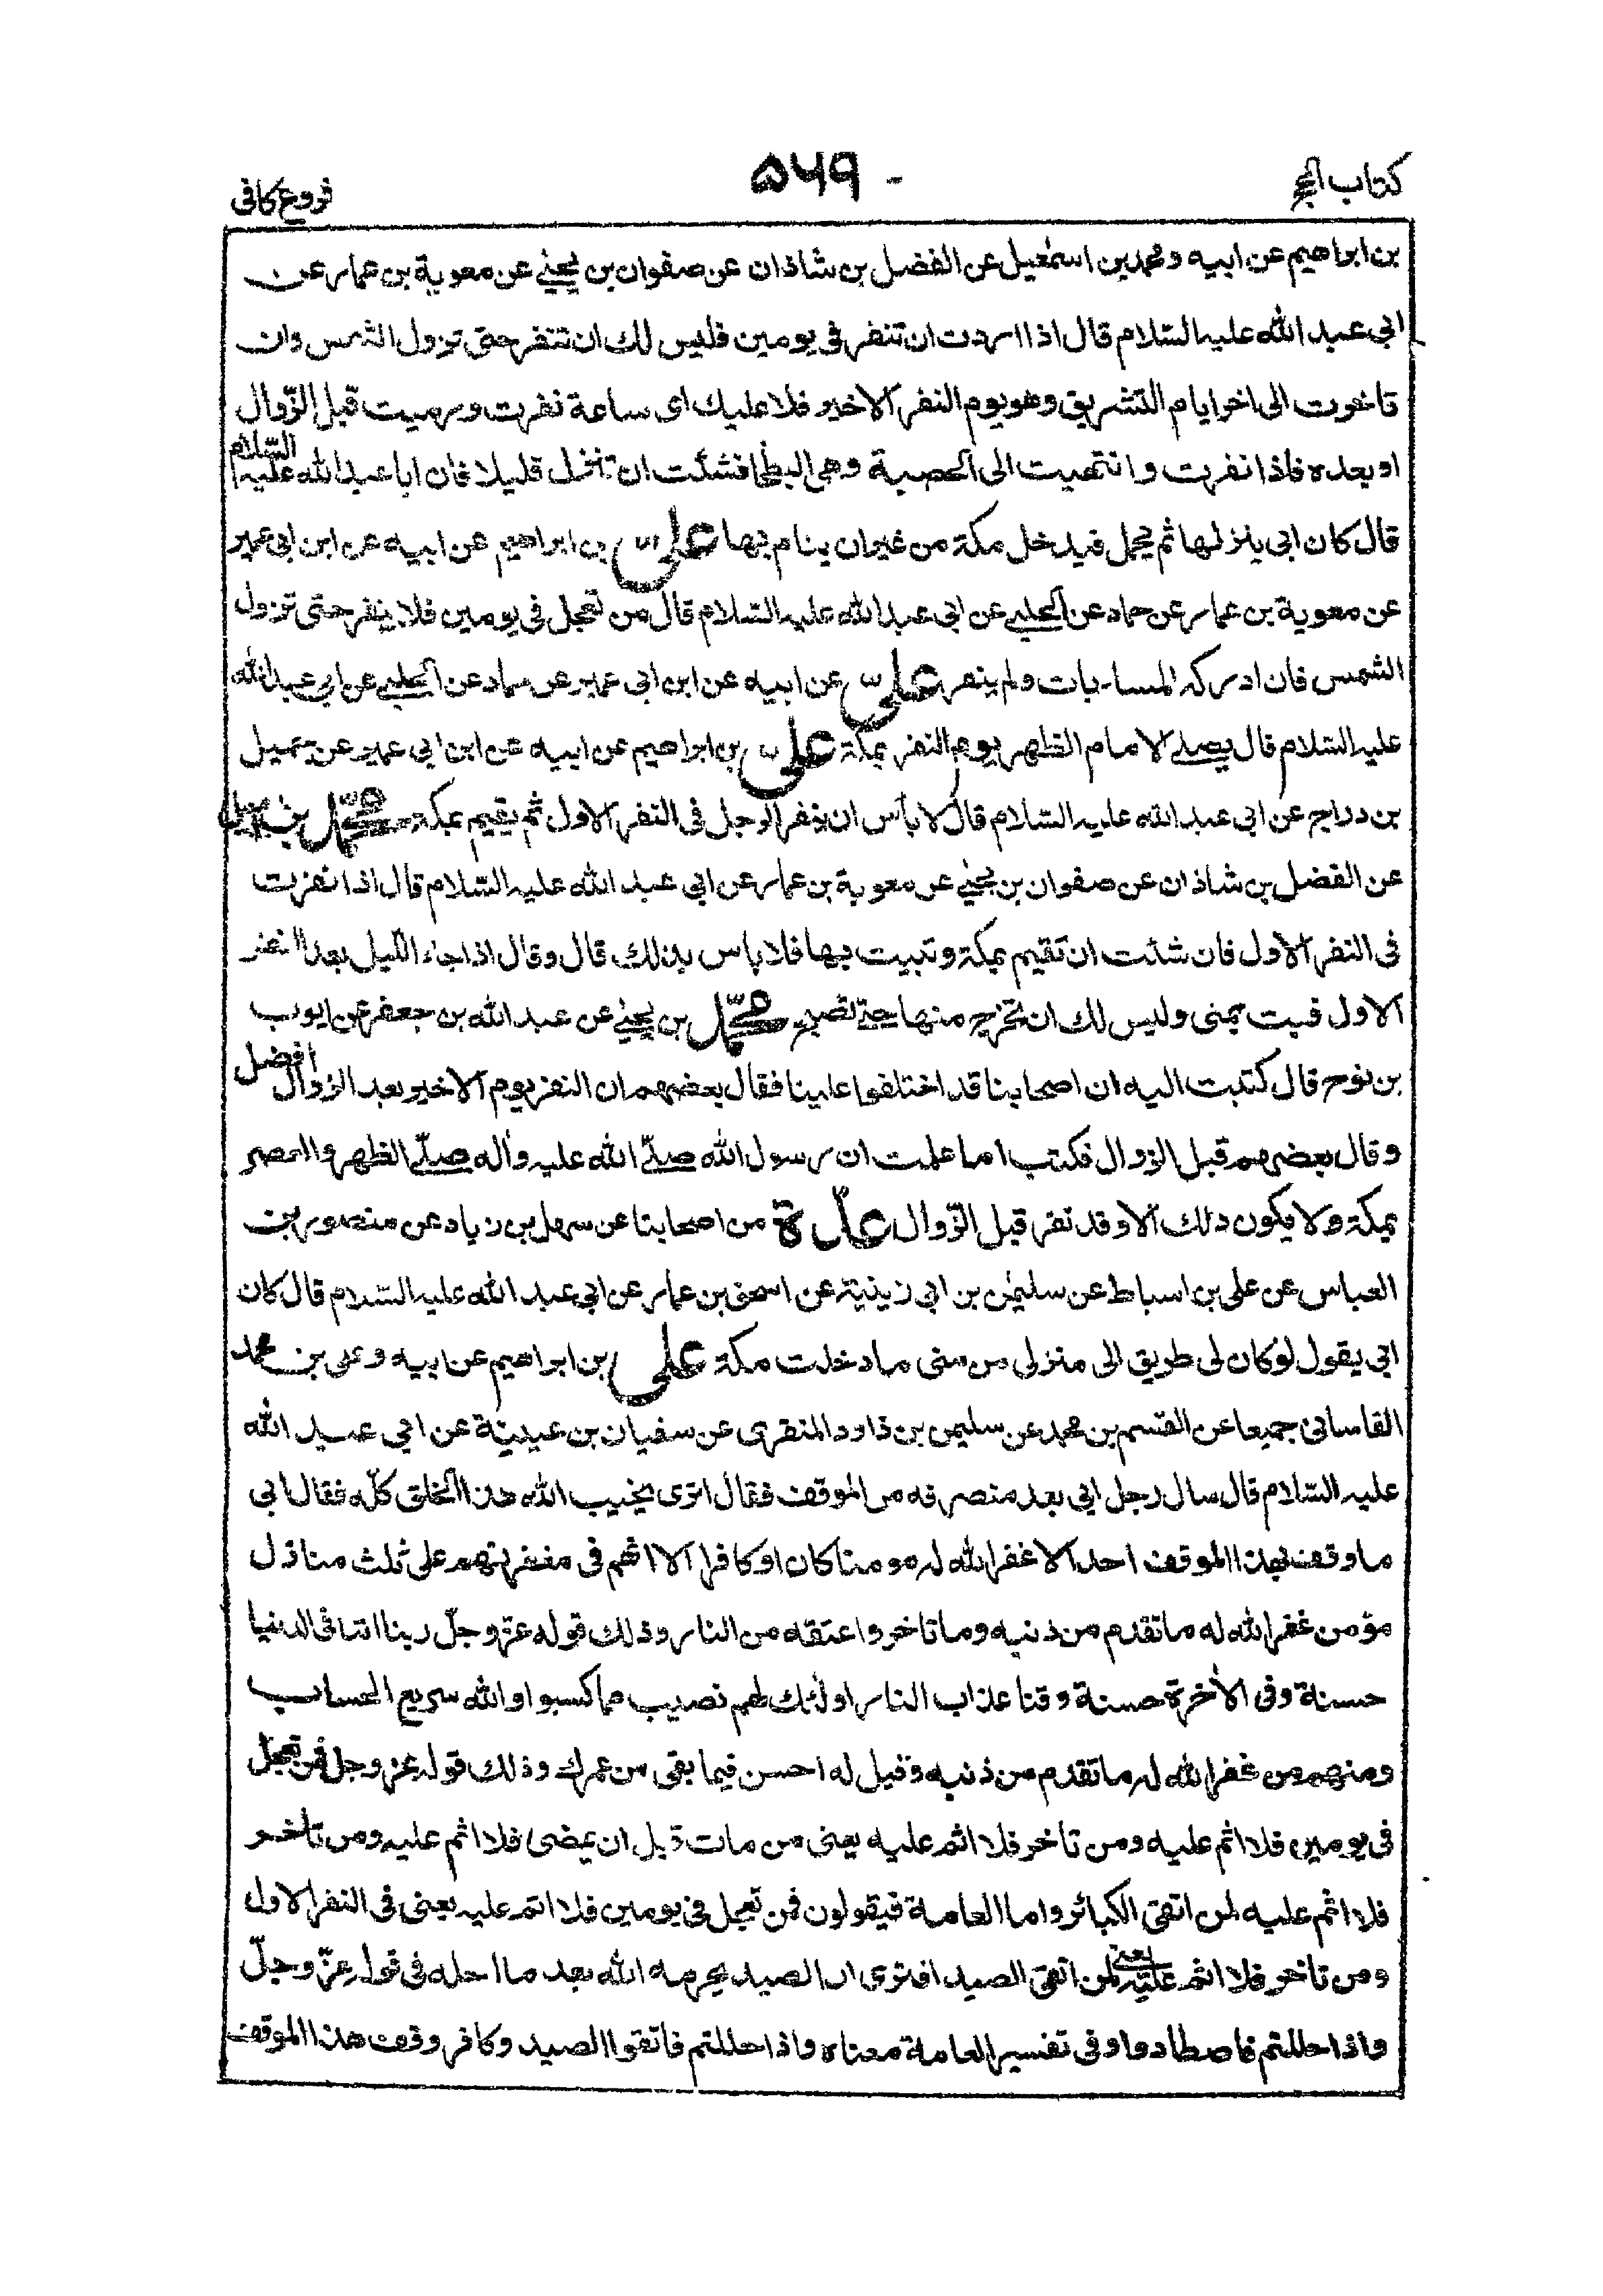 كتاب الحج
۵۶۹
فروع كافى
بن ابراهيم عن ابيه ومحمد بن اسمعيل عن الفضل بن شاذان عن صفوان بن يحيى عن معوية بن عمار عن
ابى عبد الله عليه السلام قال اذا اردت ان تنفر فى يومين فليس لك ان تنفر حتى تزول الشمس وان
تاخرت الى اخر ايام التشريق وهو يوم النفر الاخير فلا عليك اى ساعة نفرت ورميت قبل الزّوال
او بعده فاذا نفرت وانتهيت الى الحصبة وهى البطحا فشئت ان تنزل قليلا فان ابا عبد الله عليه السّلام
قال كان ابى ينزلها ثم يحمل فيدخل مكة من غير ان ينام بها على بن ابراهيم عن ابيه عن ابن ابى عمير
عن معوية بن عمار عن حماد عن الحلبى عن ابى عبد الله عليه السلام قال من تعجل فى يومين فلا ينفر حتى تزول
الشمس فان ادركه المساء بات ولم ينفر على عن ابيه عن ابن ابى عمير عن حماد عن الحلبى عن ابى عبد الله
عليه السلام قال يصلى الامام الظهر يوم النفر بمكة على بن ابراهيم عن ابيه عن ابن ابى عمير عن جميل
بن دراج عن ابى عبد الله عليه السلام قال لا بأس ان ينفر الرجل فى النفر الاول ثم يقيم بمكة محمّد بن اسمعيل
عن الفضل بن شاذان عن صفوان بن يحيى عن معوية بن عمار عن ابى عبد الله عليه السّلام قال اذا نفرت
فى النفر الاول فان شئت ان تقيم بمكة وتبيت بها فلا باس بذلك قال وقال اذا جاء الليل بعد النفر
الاول فبت بمنى وليس لك ان تخرج منها حتى تصبح محمّد بن يحيى عن عبد الله بن جعفر عن ايوب
بن نوح قال كتبت اليه ان اصحابنا قد اختلفوا علينا فقال بعضهم ان النفر يوم الاخير بعد الزوال افضل
وقال بعضهم قبل الزوال فكتب اما علمت ان رسول الله صلّى الله عليه واله صلّى الظهر والعصر
بمكة ولا يكون ذلك الا وقد نفر قبل الزّوال عدّة من اصحابنا عن سهل بن زياد عن منصور بن
العباس عن على بن اسباط عن سليمن بن ابى زينبة عن اسحق بن عمار عن ابى عبد الله عليه السّلام قال كان
ابى يقول لو كان لى طريق الى منزلى من منى ما دخلت مكة على بن ابراهيم عن ابيه وعلى بن محمد
القاسانى جميعا عن القسم بن محمد عن سليمن بن داود المنقرى عن سفيان بن عيينة عن ابى عبد الله
عليه السّلام قال سال رجل ابى بعد منصرفه من الموقف فقال اترى يخيب الله هذا الخلق كلّه فقال ابى
ما وقف بهذا الموقف احد الا غفر الله له مومنا كان او كافرا الا انهم فى مغفرتهم على ثلث منازل
مؤمن غفر الله له ما تقدم من ذنبه وما تاخر واعتقه من النار وذلك قوله عزّ وجلّ ربنا اتنا فى الدنيا
حسنة وفى الاخرة حسنة وقنا عذاب النار اولئك لهم نصيب مما كسبوا والله سريع الحساب
ومنهم من غفر الله له ما تقدم من ذنبه وقيل له احسن فيما بقى من عمرك وذلك قوله عز وجل فمن تعجل
فى يومين فلا اثم عليه ومن تأخر فلا اثم عليه يعنى من مات قبل ان يمضى فلا اثم عليه ومن تأخر
فلا اثم عليه لمن اتقى الكبائر واما العامة فيقولون فمن تعجل فى يومين فلا اثم عليه يعنى فى النفر الاول
ومن تاخر فلا اثم عليه يعنى لمن اتقى الصيد افترى ان الصيد يحرمه الله بعد ما احله فى قوله عزّ وجلّ
واذا حللتم فاصطادوا وفى تفسير العامة معناه واذا حللتم فاتقوا الصيد وكافر وقف هذا الموقف